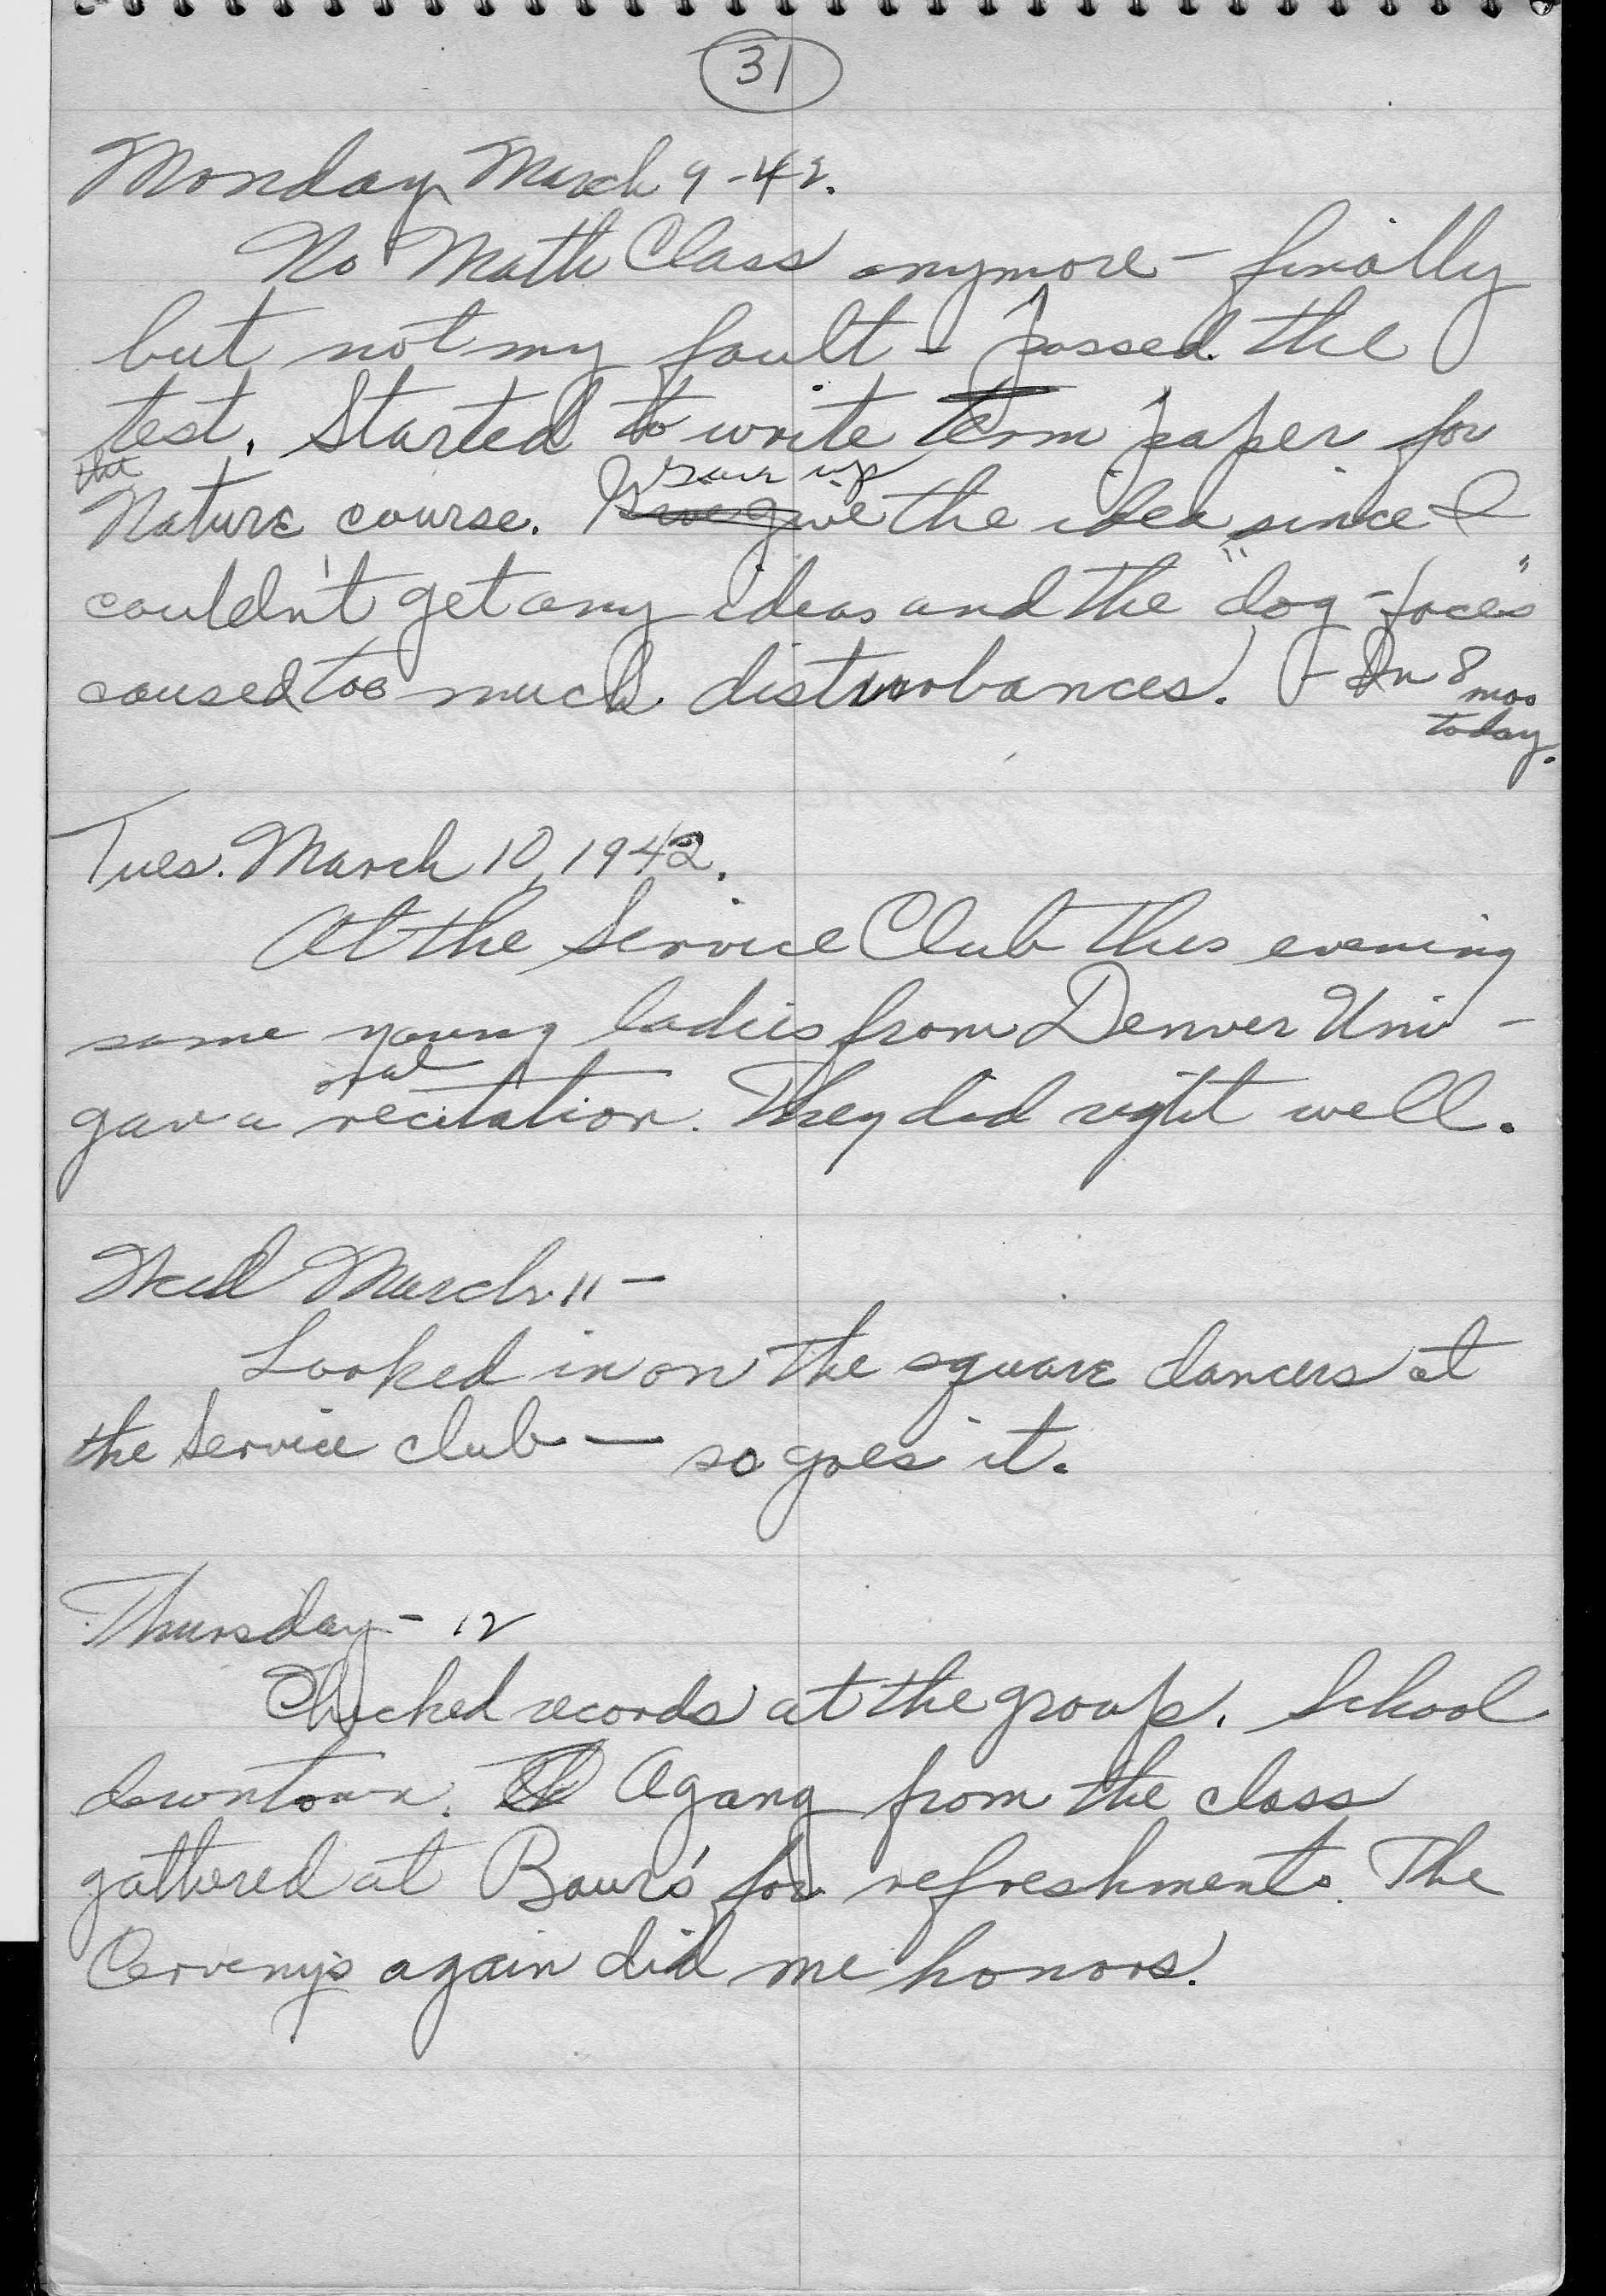 31
Monday March 9-42.
No Math Class anymore - finally
but not my fault - passed the
test. Started to write term paper for
the
Nature course. Gave up the idea since I
couldn't get any ideas and the "dog-faces"
caused too much disturbances. - In 8
mos
today.
Tues. March 10, 1942.
At the Service Club this evening
some young ladies from Denver Univ -
oral
gave a recitation. They did right well.
Wed March 11 -
Looked in on the square dancers at
the Service club — so goes it.
Thursday - 12
Checked records at the group. School
downtown. A gang from the class
gathered at Baur's for refreshments. The
Cerveny's again did me honors.